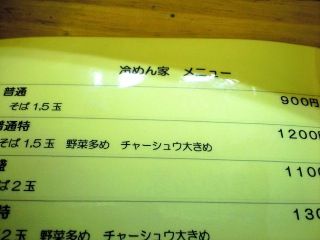 冷めん家 メニュー
普通 900円
そば1.5玉
普通特 1200円
そば1.5玉 野菜多め チャーシュウ大きめ
盛 1100
そば2玉
特 130
ば2玉 野菜多め チャーシュウ大きめ